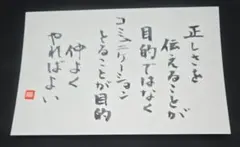 正しさを
伝えることが
目的ではなく
コミュニケーション
とることが目的
仲よく
やればよい